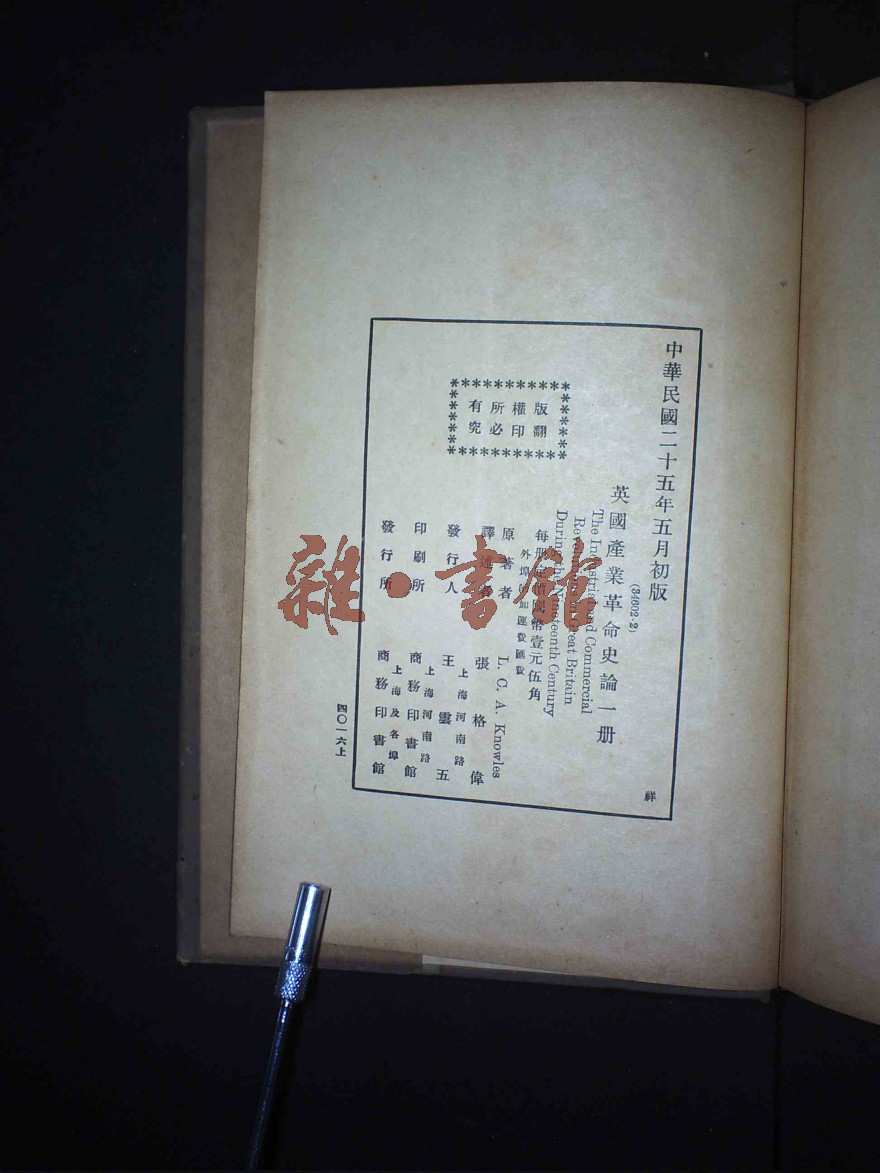 中華民國二十五年五月初版
(34602·2)
英國產業革命史論一册
The Industrial and Commercial
Revolutions in Great Britain
During the Nineteenth Century
每册定價國幣壹元伍角
外埠酌加運費匯費
原著者 L. C. A. Knowles
譯述者 張格偉
發行人 王雲五
上海河南路
印刷所 商務印書館
上海河南路
發行所 商務印書館
上海及各埠
版權所有
翻印必究
祥
四〇一六上
雜·書館